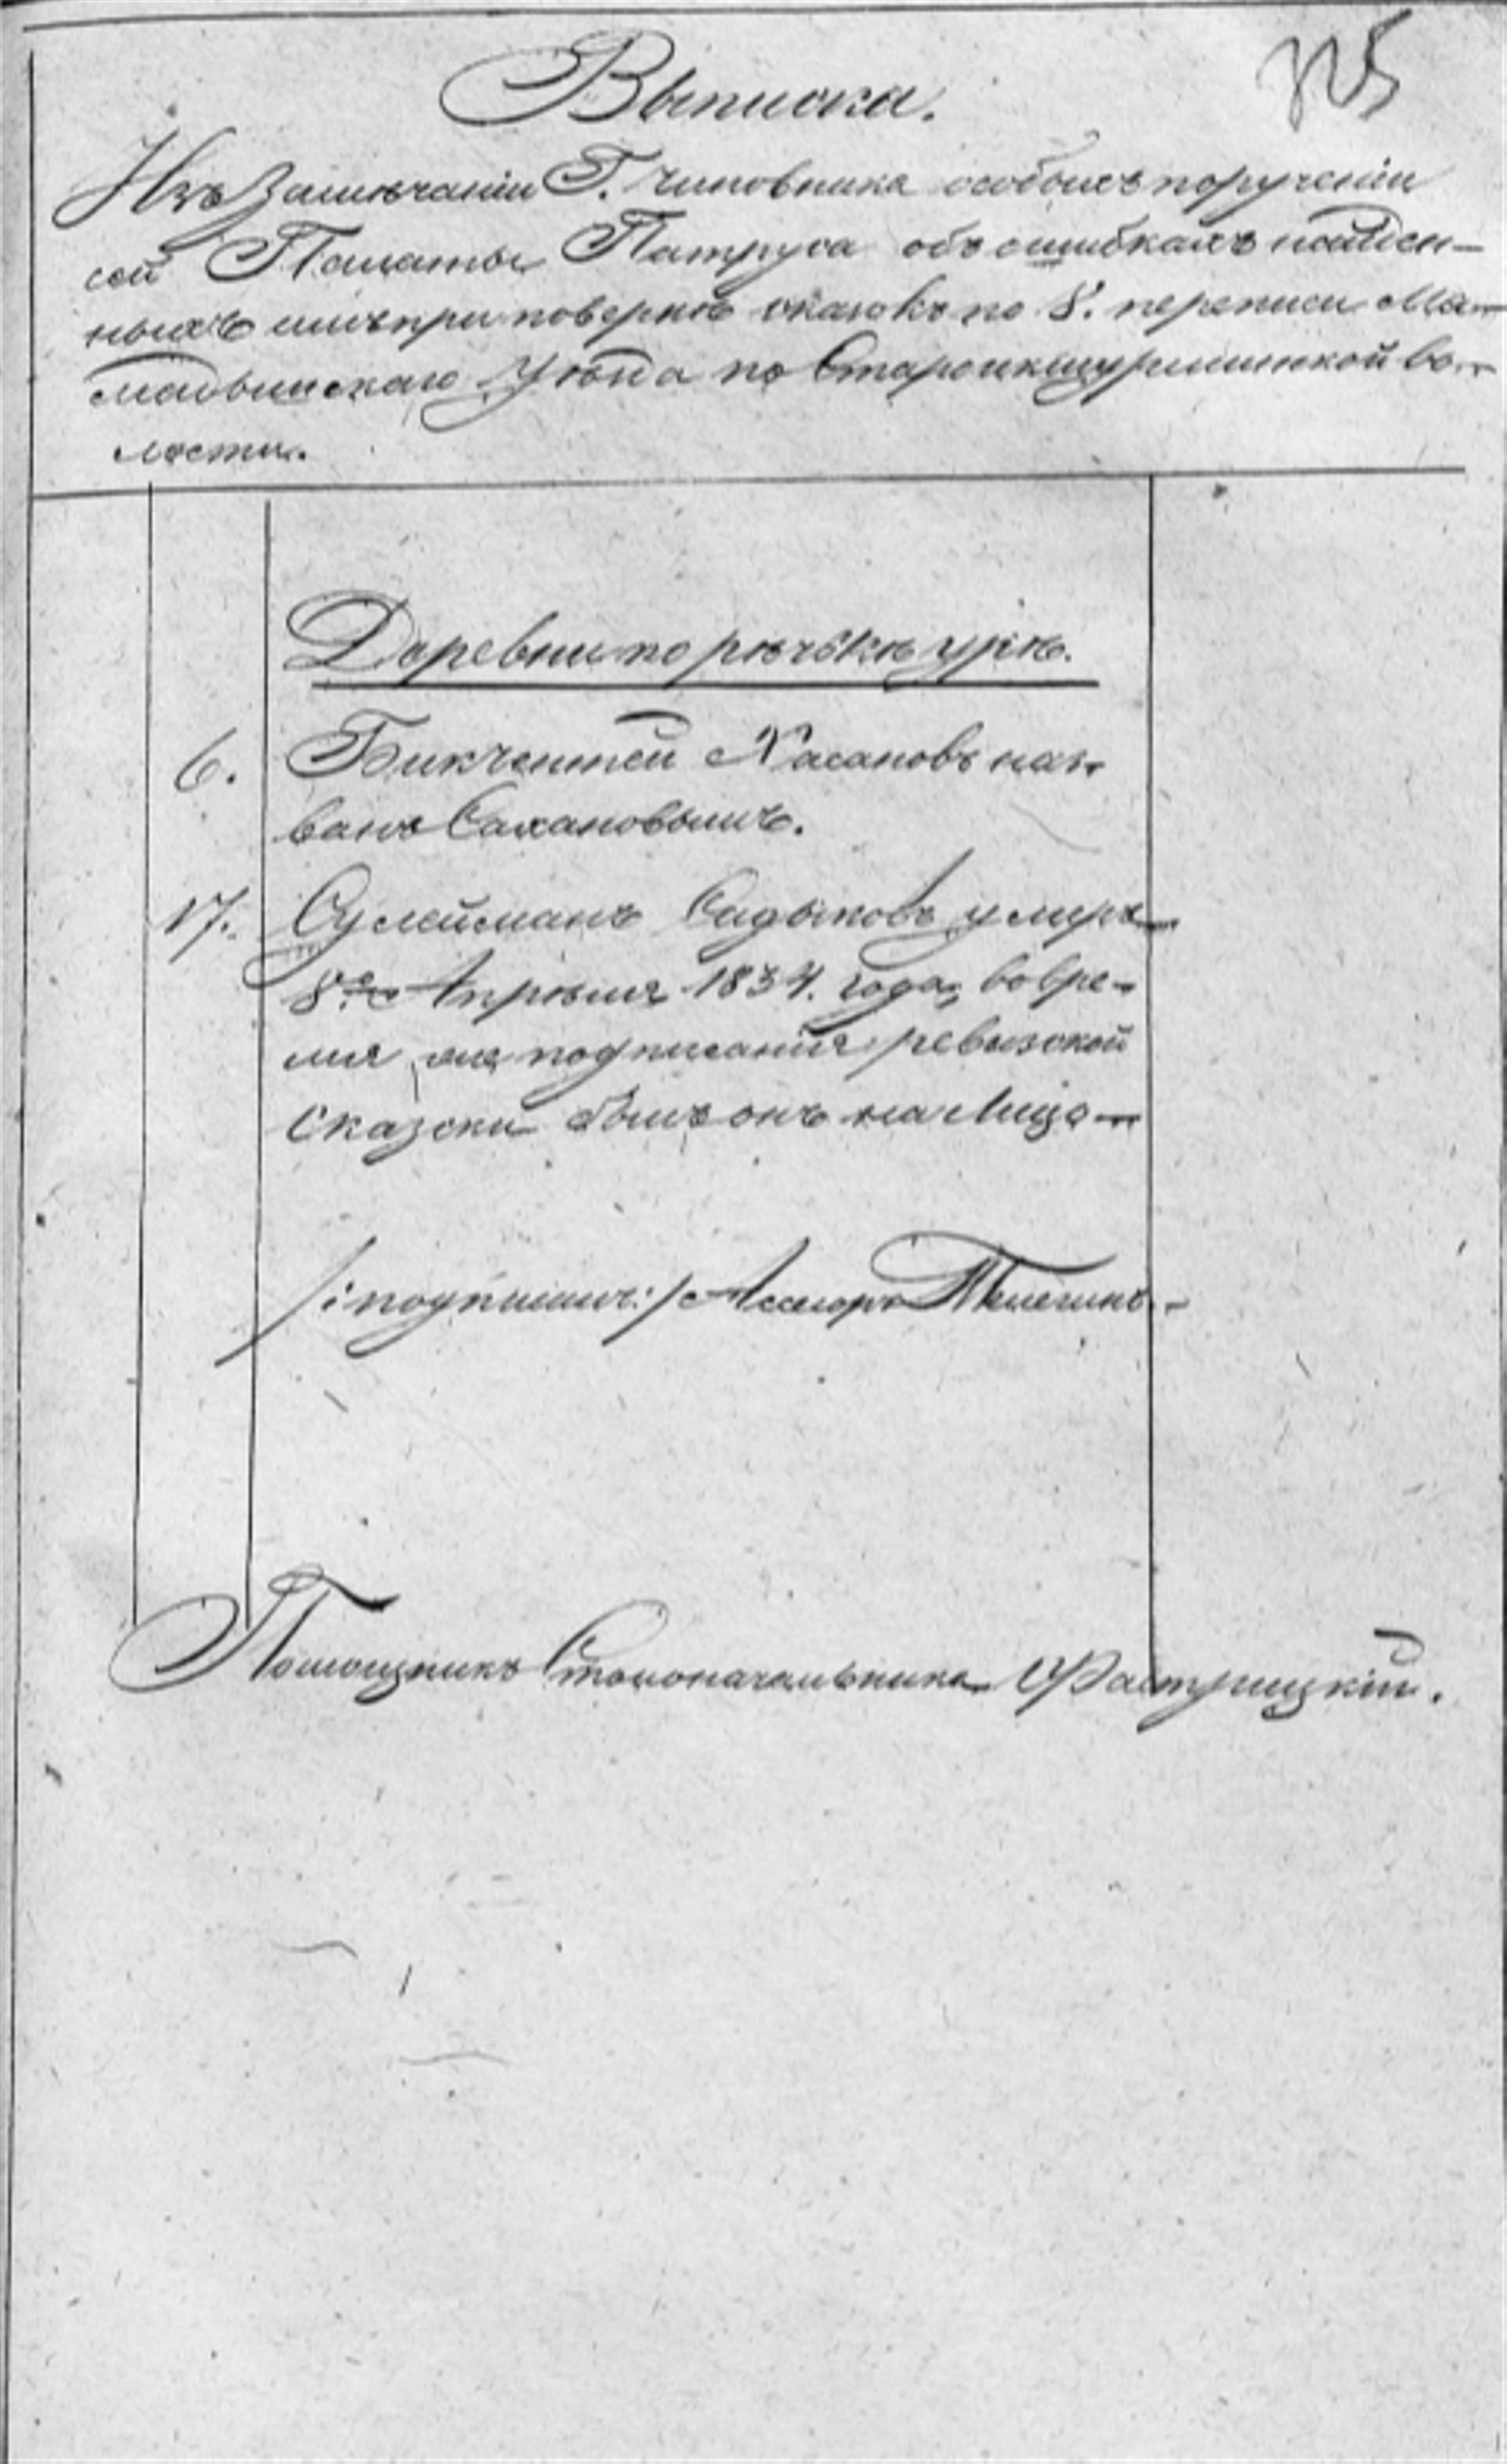 Выписка.
325
Изъ Замѣчаніи Г. Чиновника особыхъ порученіи
сей Палаты Патруса объ ошибкахъ найден-
ныхъ имъ при повѣркѣ сказокъ по 8. переписи Ма-
мадышскаго Уѣзда по Староикшурминской во-
лости.
Деревни по рѣчькѣ урѣ.
6. Бикчентей Хасановъ наз-
ванъ Сахановымъ.
17. Сулейманъ Садыковъ умеръ
8го Апрѣля 1834. года, во вре-
мя же подписанія ревизской
Сказски былъ онъ на лицо
/:подписалъ:/ Асесоръ
Помощникъ Столоначальника